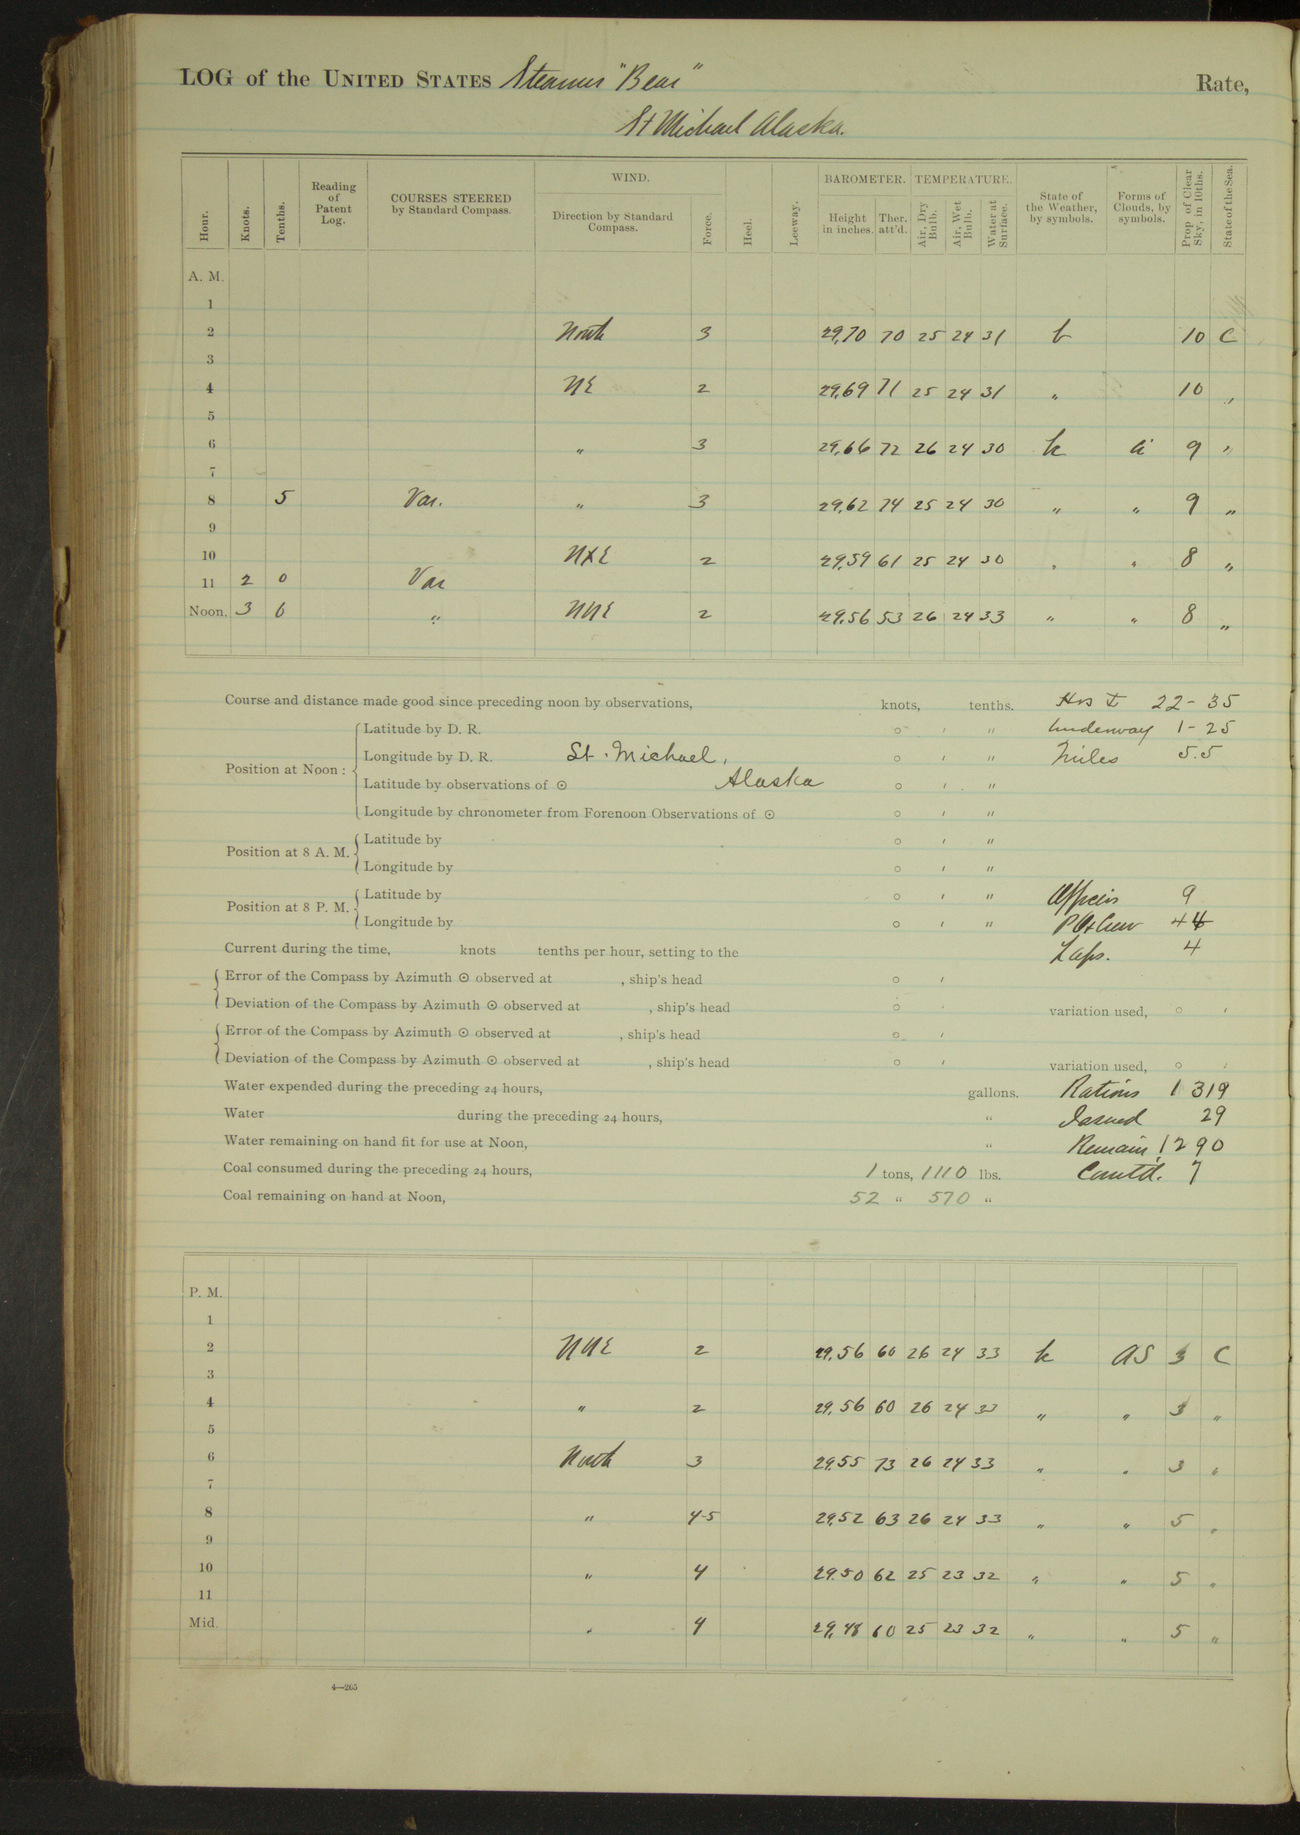 LOG of the UNITED STATES Steamer "Bear" Rate,
St Michael Alaska.
Hour. Knots. Tenths. Reading of Patent Log. COURSES STEERED by Standard Compass. WIND. Direction by Standard Compass. Force. Heel. Leeway. BAROMETER. Height in inches. Ther. att'd. TEMPERATURE. Air, Dry Bulb. Air, Wet Bulb. Water at Surface. State of the Weather, by symbols. Forms of Clouds, by symbols. Prop. of Clear Sky, in 10ths. State of the Sea.
A. M.
1
2 North 3 29.70 70 25 24 31 b 10 C
3
4 NE 2 29.69 71 25 24 31 " 10 "
5
6 " 3 29.66 72 26 24 30 bc Ci 9 "
7
8 5 Var. " 3 29.62 74 25 24 30 " " 9 "
9
10 NxE 2 29.59 61 25 24 30 " " 8 "
11 2 0 Var
Noon. 3 0 " NNE 2 29.56 53 26 24 33 " " 8 "
Course and distance made good since preceding noon by observations, knots, tenths. Hrs 22-35
Latitude by D. R. ° ′ ″ Underway 1-25
Position at Noon: Longitude by D. R. St. Michael, ° ′ ″ Miles 5.5
Latitude by observations of ☉ Alaska ° ′ ″
Longitude by chronometer from Forenoon Observations of ☉ ° ′ ″
Position at 8 A. M. Latitude by ° ′ ″
Longitude by ° ′ ″
Position at 8 P. M. Latitude by ° ′ ″ Officers 9
Longitude by ° ′ ″ PO & Crew 44
Current during the time, knots tenths per hour, setting to the 4
Error of the Compass by Azimuth ☉ observed at , ship's head ° ′
Deviation of the Compass by Azimuth ☉ observed at , ship's head ° ′ variation used, ° ′
Error of the Compass by Azimuth ☉ observed at , ship's head ° ′
Deviation of the Compass by Azimuth ☉ observed at , ship's head ° ′ variation used, ° ′
Water expended during the preceding 24 hours, gallons. Rations 1319
Water during the preceding 24 hours, " Issued 29
Water remaining on hand fit for use at Noon, " Remain 1290
Coal consumed during the preceding 24 hours, 1 tons, 1110 lbs. Comtd. 7
Coal remaining on hand at Noon, 52 " 570 "
P. M.
1
2 NNE 2 29.56 60 26 24 33 bc AS 3 C
3
4 " 2 29.56 60 26 24 33 " " 3 "
5
6 North 3 29.55 73 26 24 33 " " 3 "
7
8 " 4-5 29.52 63 26 24 33 " " 5 "
9
10 " 4 29.50 62 25 23 32 " " 5 "
11
Mid. " 4 29.48 60 25 23 32 " " 5 "
4—265